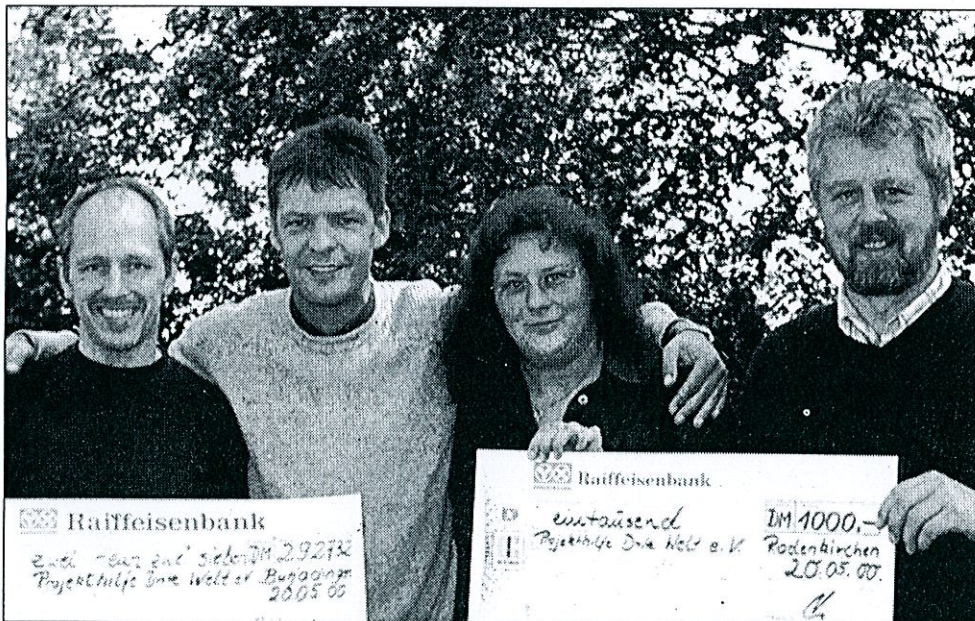 Raiffeisenbank
zwei DM 2927,32
Projekthilfe Dritte Welt eV
20.05.00
Raiffeisenbank
eintausend DM 1000,-
Projekthilfe Dritte Welt e.V. Rodenkirchen
20.05.00.